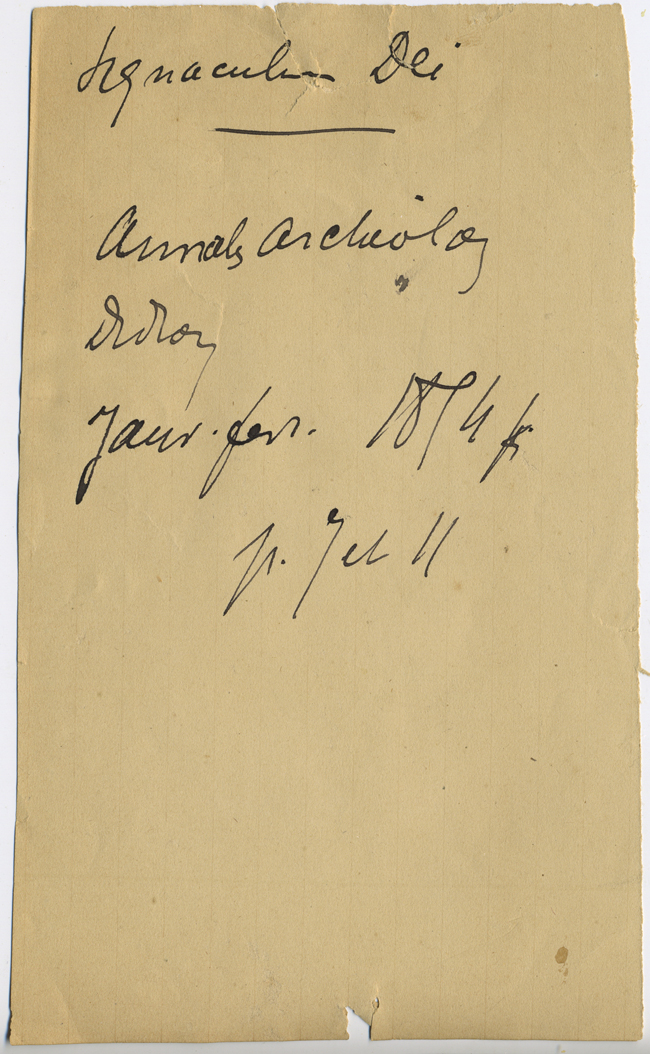 Signaculum Dei
Annales Archéolog
Didron
Janv. fevr. 1854
p. 7 et 11